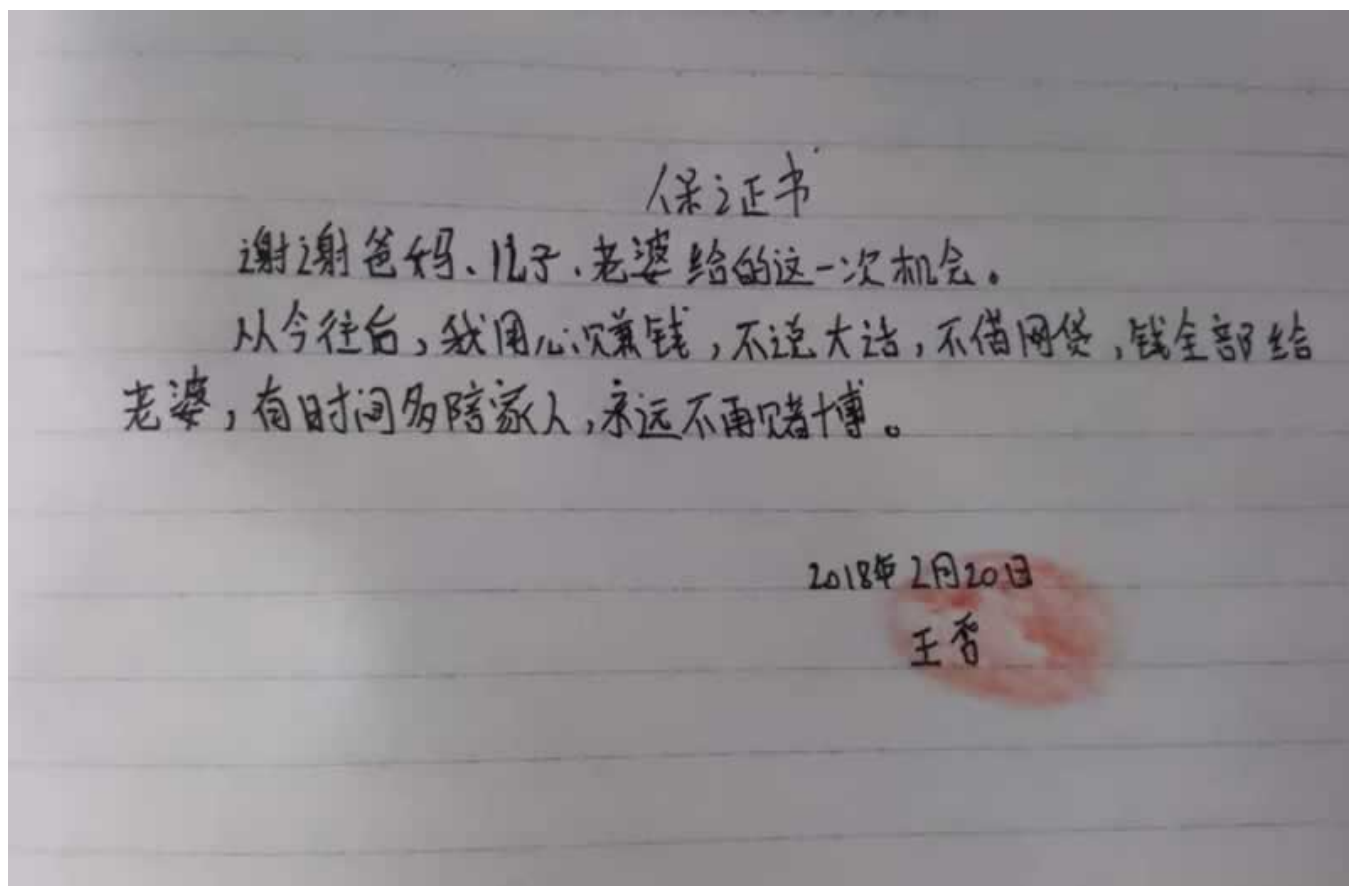 保证书
谢谢爸妈、儿子、老婆给的这一次机会。
从今往后，我用心赚钱，不说大话，不借网贷，钱全部给
老婆，有时间多陪家人，永远不再赌博。
2018年2月20日
王香